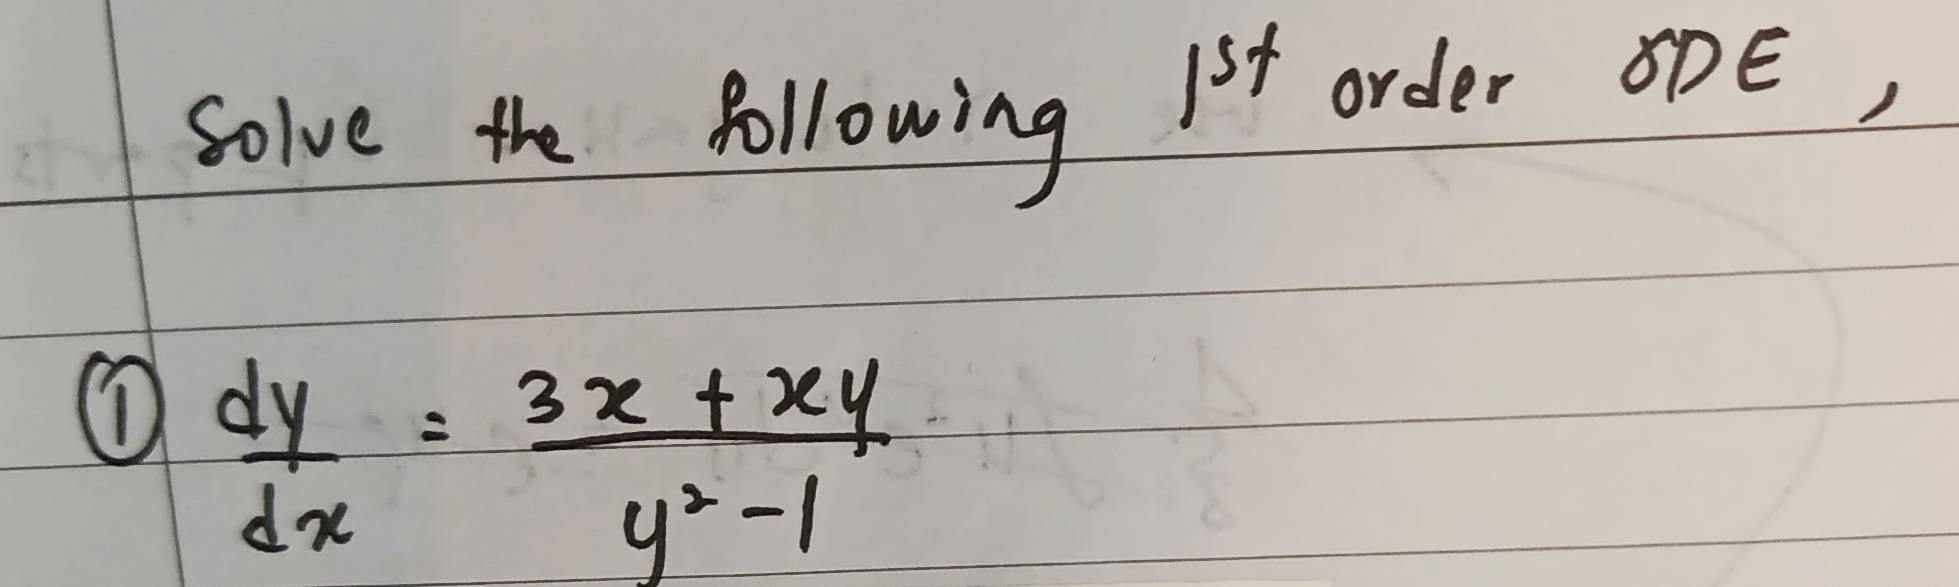 Solve the following 1st order ODE,
① dy/dx = (3x + xy)/(y² - 1)